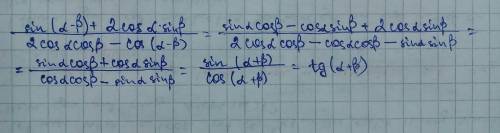 (sin(α-β) + 2cosα·sinβ)/(2cosαcosβ - cos(α-β)) = (sinαcosβ - cosαsinβ + 2cosαsinβ)/(2cosαcosβ - cosαcosβ - sinαsinβ) =
= (sinαcosβ + cosαsinβ)/(cosαcosβ - sinαsinβ) = sin(α+β)/cos(α+β) = tg(α+β)